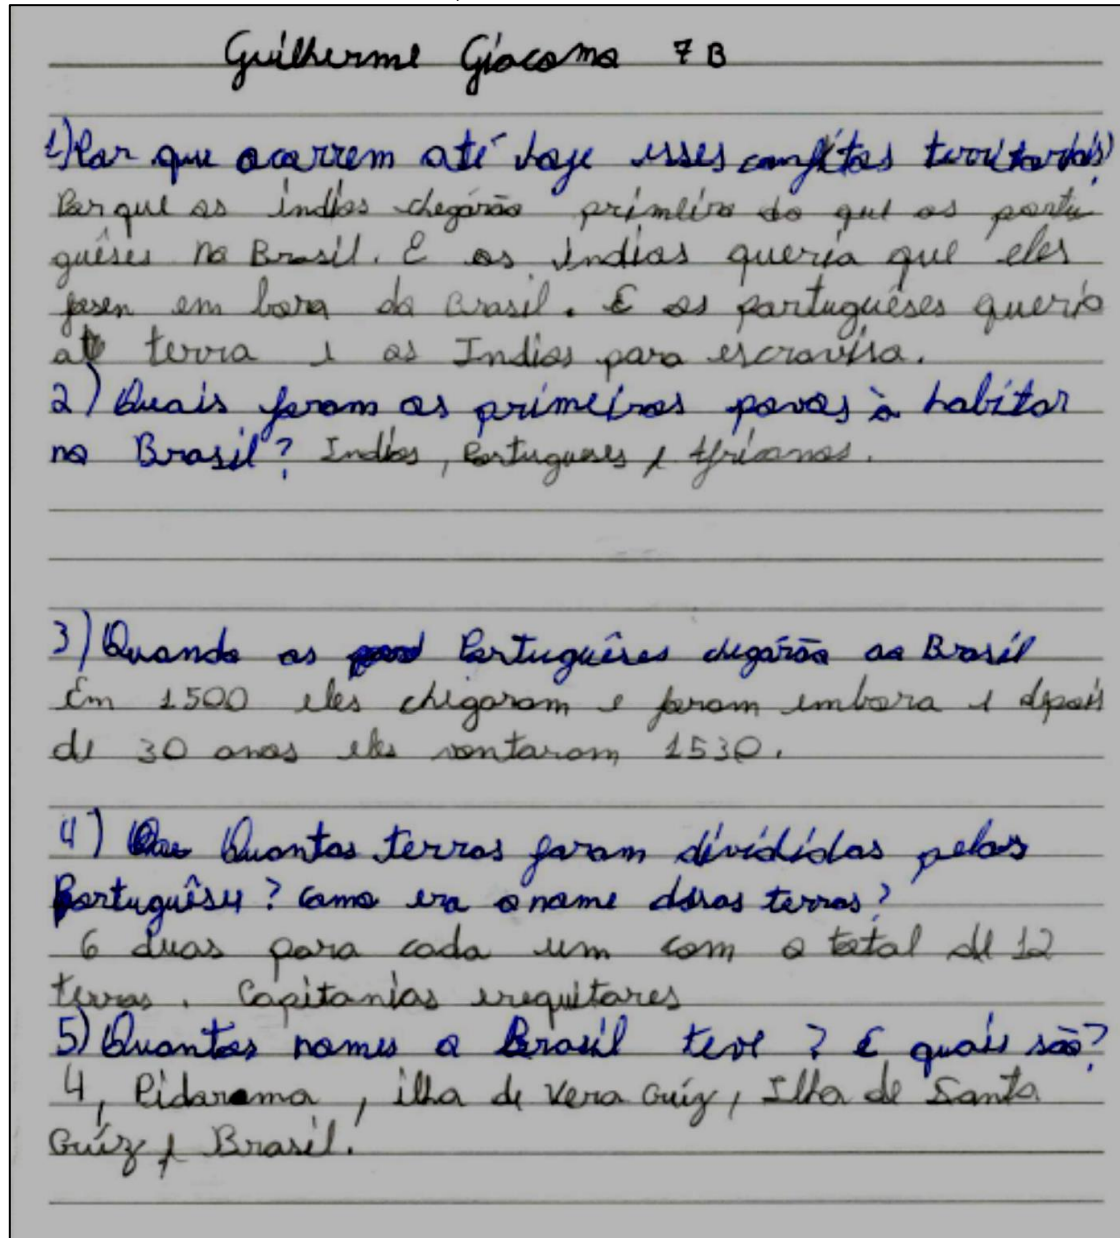 Guilherme Giacoma 7 B
1) Por que ocorrem até hoje esses conflitos territoriais?
Porque os índios chegárão primeiro do que os portu
guêses no Brasil. E os índios queria que eles
fosen em bora do Brasil. E os portuguêses queria
a terra e os Indios para escravisa.
2) Quais foram os primeiros povos à habitar
no Brasil? Indios, Portugueses e Africanos.
3) Quando os Portuguêses chegárão ao Brasil
Em 1500 eles chegaram e foram embora e depois
de 30 anos eles vontaram 1530.
4) Quantas terras foram divididas pelos
Portuguêses? Como era o nome dessas terras?
6 duas para cada um com o total de 12
terras. Capitanias
5) Quantos nomes o Brasil teve? E quais são?
4, Pidorama, ilha de Vera Cruíz, Ilha de Santa
Cruíz e Brasil.